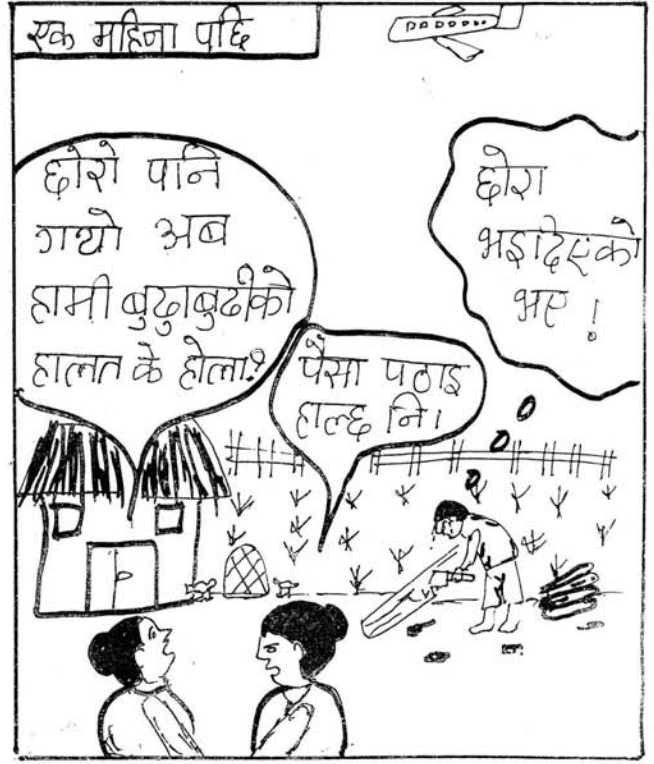 एक महिना पछि
छोरो पनि
गयो अब
हामी बुढाबुढीको
हालत के होला?
पैसा पठाइ
हाल्छ नि।
छोरा
भइदिएको
भए !